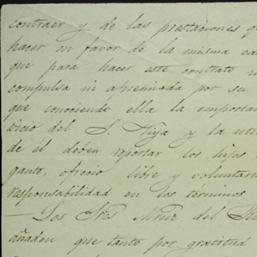 contraer y de las prestaciones q
hacer en favor de la misma ca
que para hacer este contrato n
compulsa ni apremiada por su
que conociendo ella la importan
vicio del S. y la ut
de él deben reportar los hijos
ganto, ofreció libre y voluntari
responsabilidad en los términos
—Los Sres del
añaden que tanto por gratitud